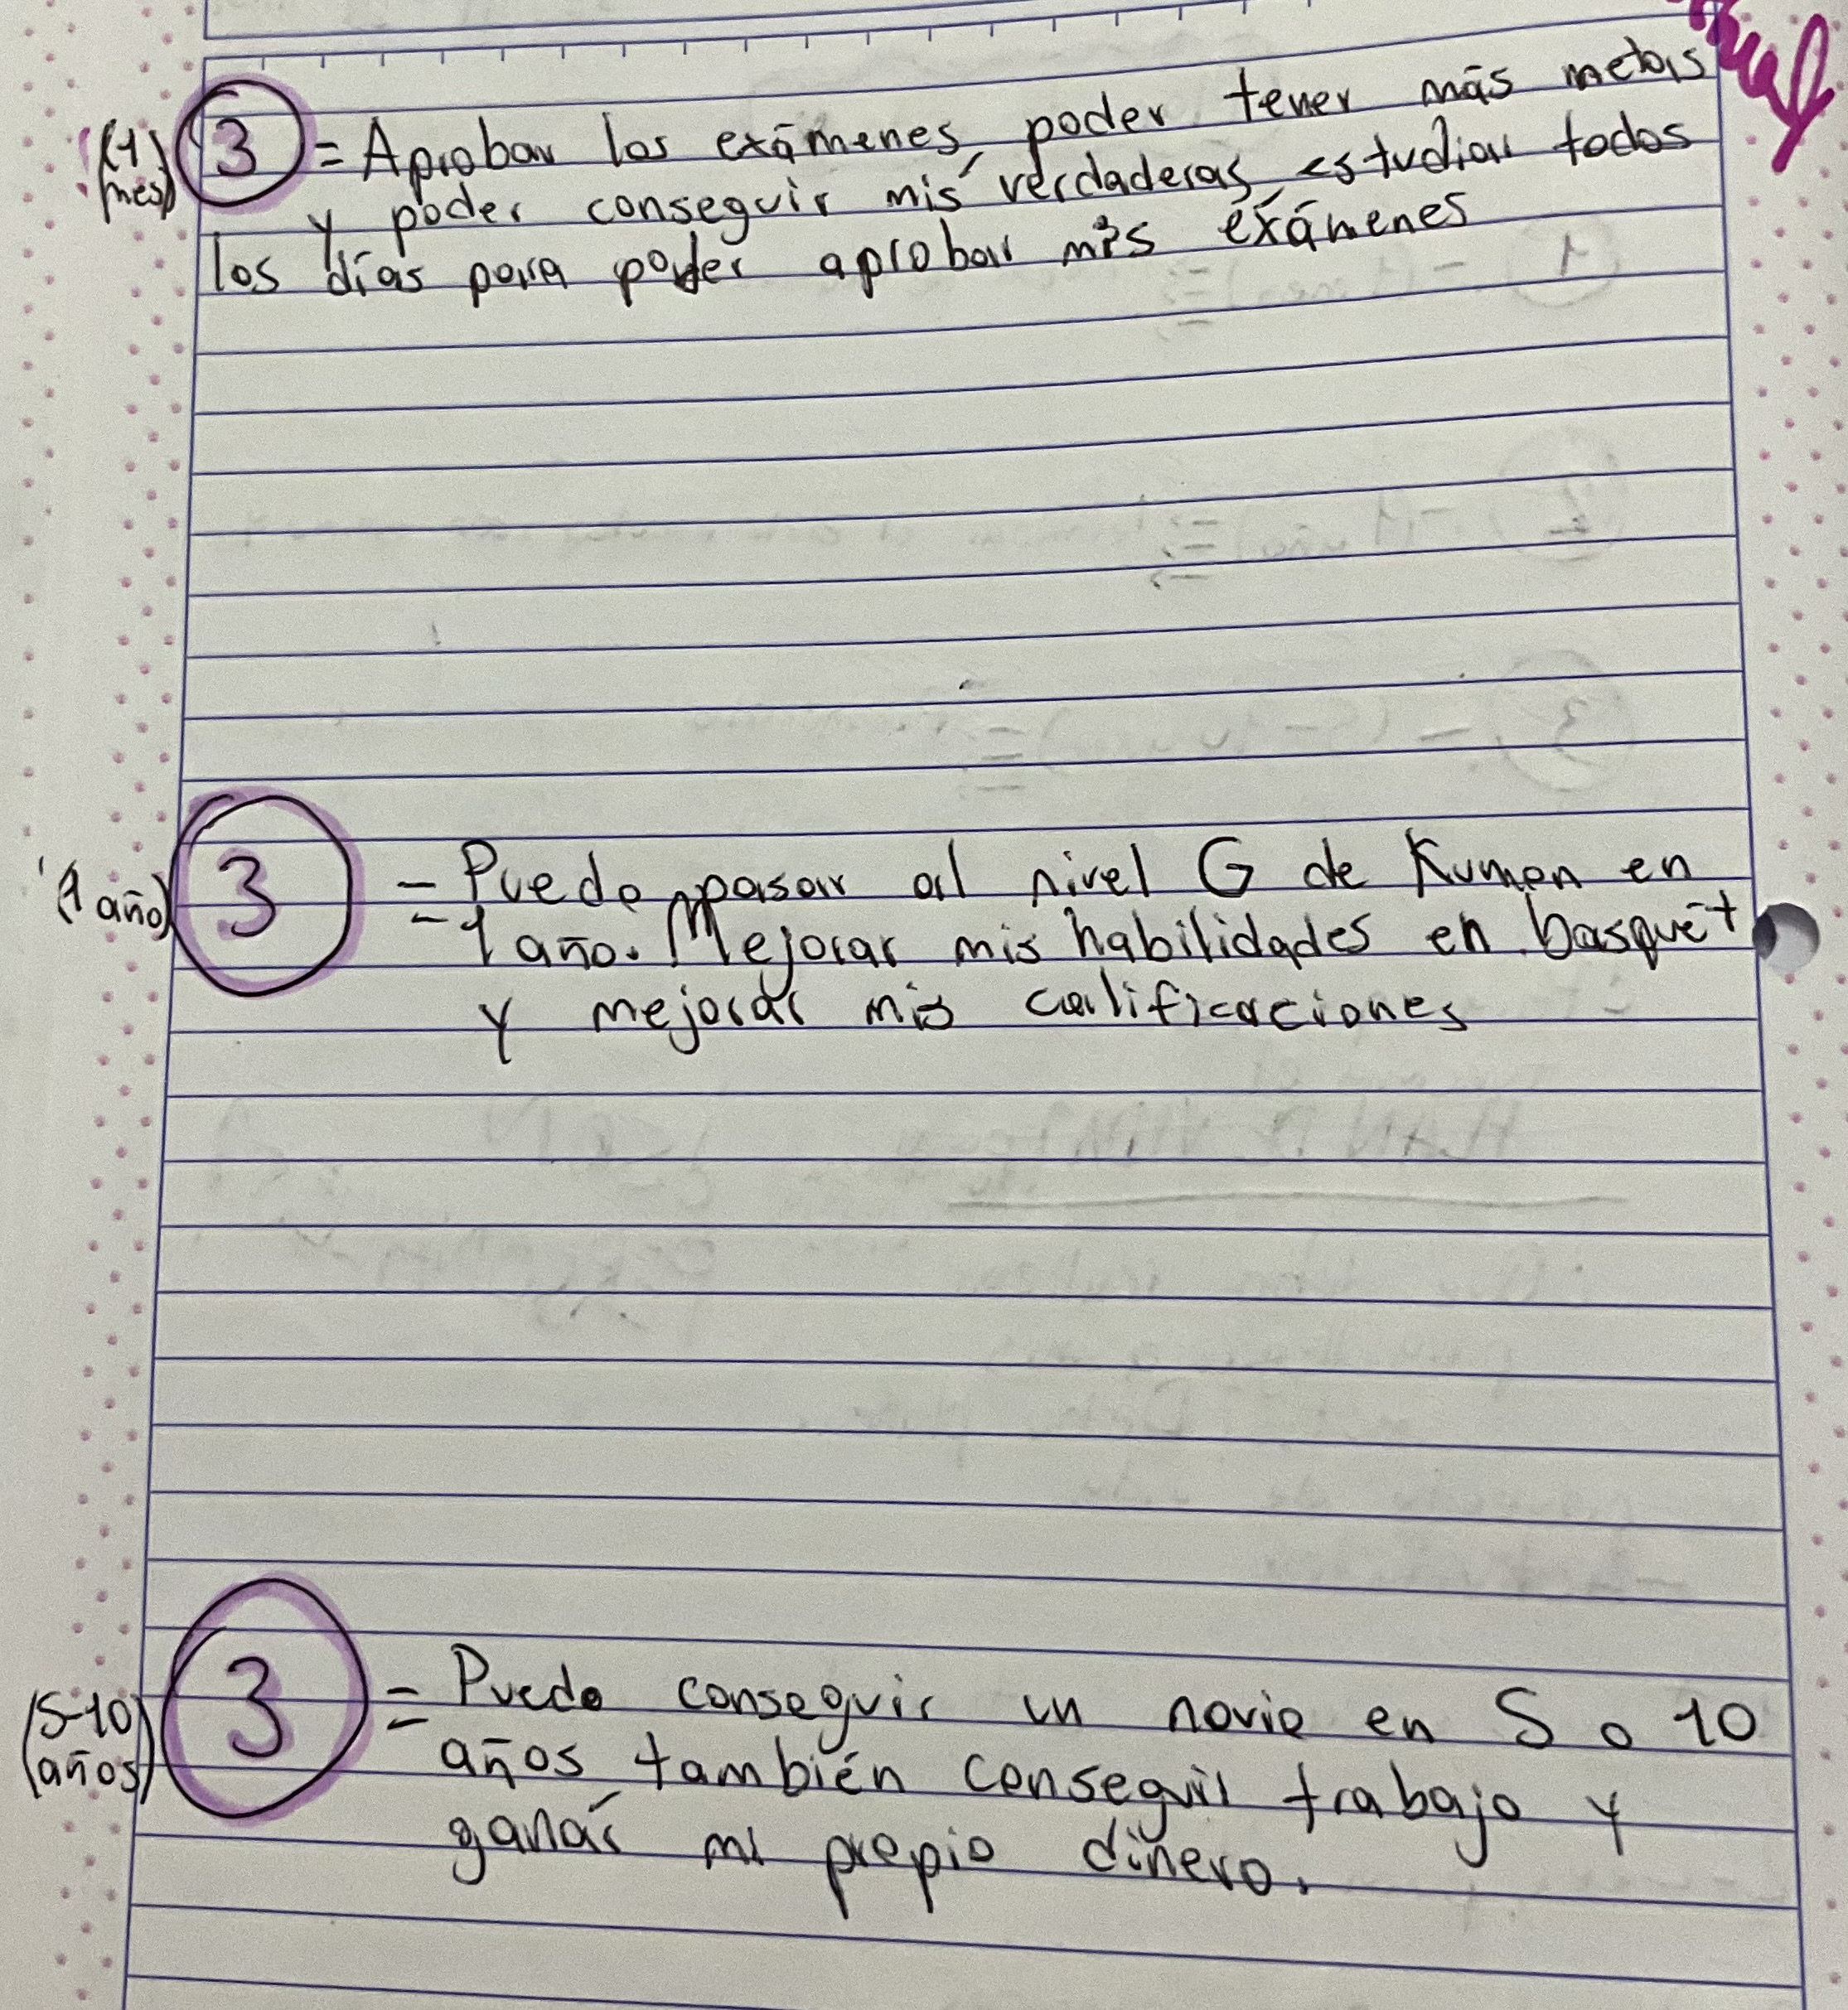 (1 mes) 3 = Aprobar los exámenes, poder tener más metas
y poder conseguir mis verdaderas, estudiar todos
los días para poder aprobar mis exámenes
(1 año) 3 = Puedo pasar al nivel G de Kumon en
1 año. Mejorar mis habilidades en basquet
y mejorar mis calificaciones
(5-10 años) 3 = Puedo conseguir un novio en 5 o 10
años también conseguir trabajo y
ganar mi propio dinero.